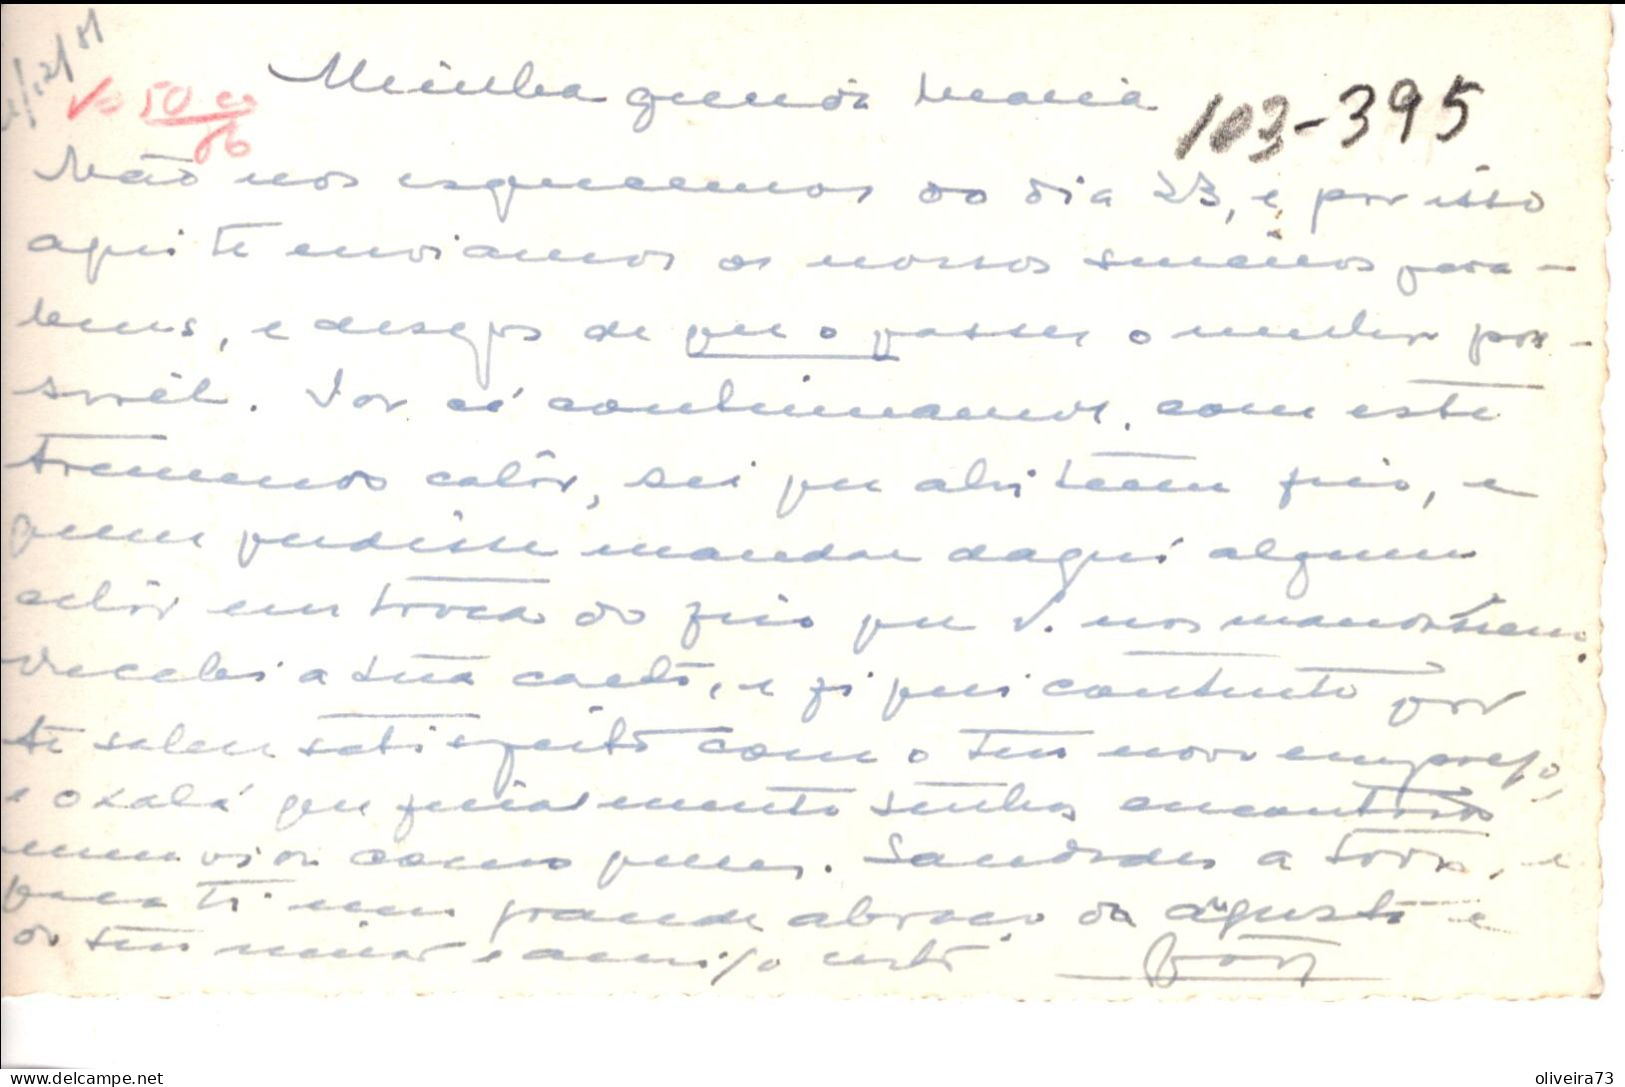 Minha querida Maria
103-395
V= 50
Não nos esquecemos do dia 23, e por isso
aqui te enviamos os nossos sinceros para-
bens, e desejos de que o passes o melhor pos-
sivél. Por cá continuamos, com este
tremendo calôr, sei que ahi teem frio, e
quem pudesse mandar daqui algum
calôr em troca do frio que V. nos mandassem.
Recebi a tua carta, e fiquei contente por
te saber satisfeita com o teu novo emprego,
e oxalá que finalmente tenhas encontrado
como queres. Saudades a todos, e
para ti um grande abraço da Augusta e
do teu e amigo certo
delcampe.net
oliveira73